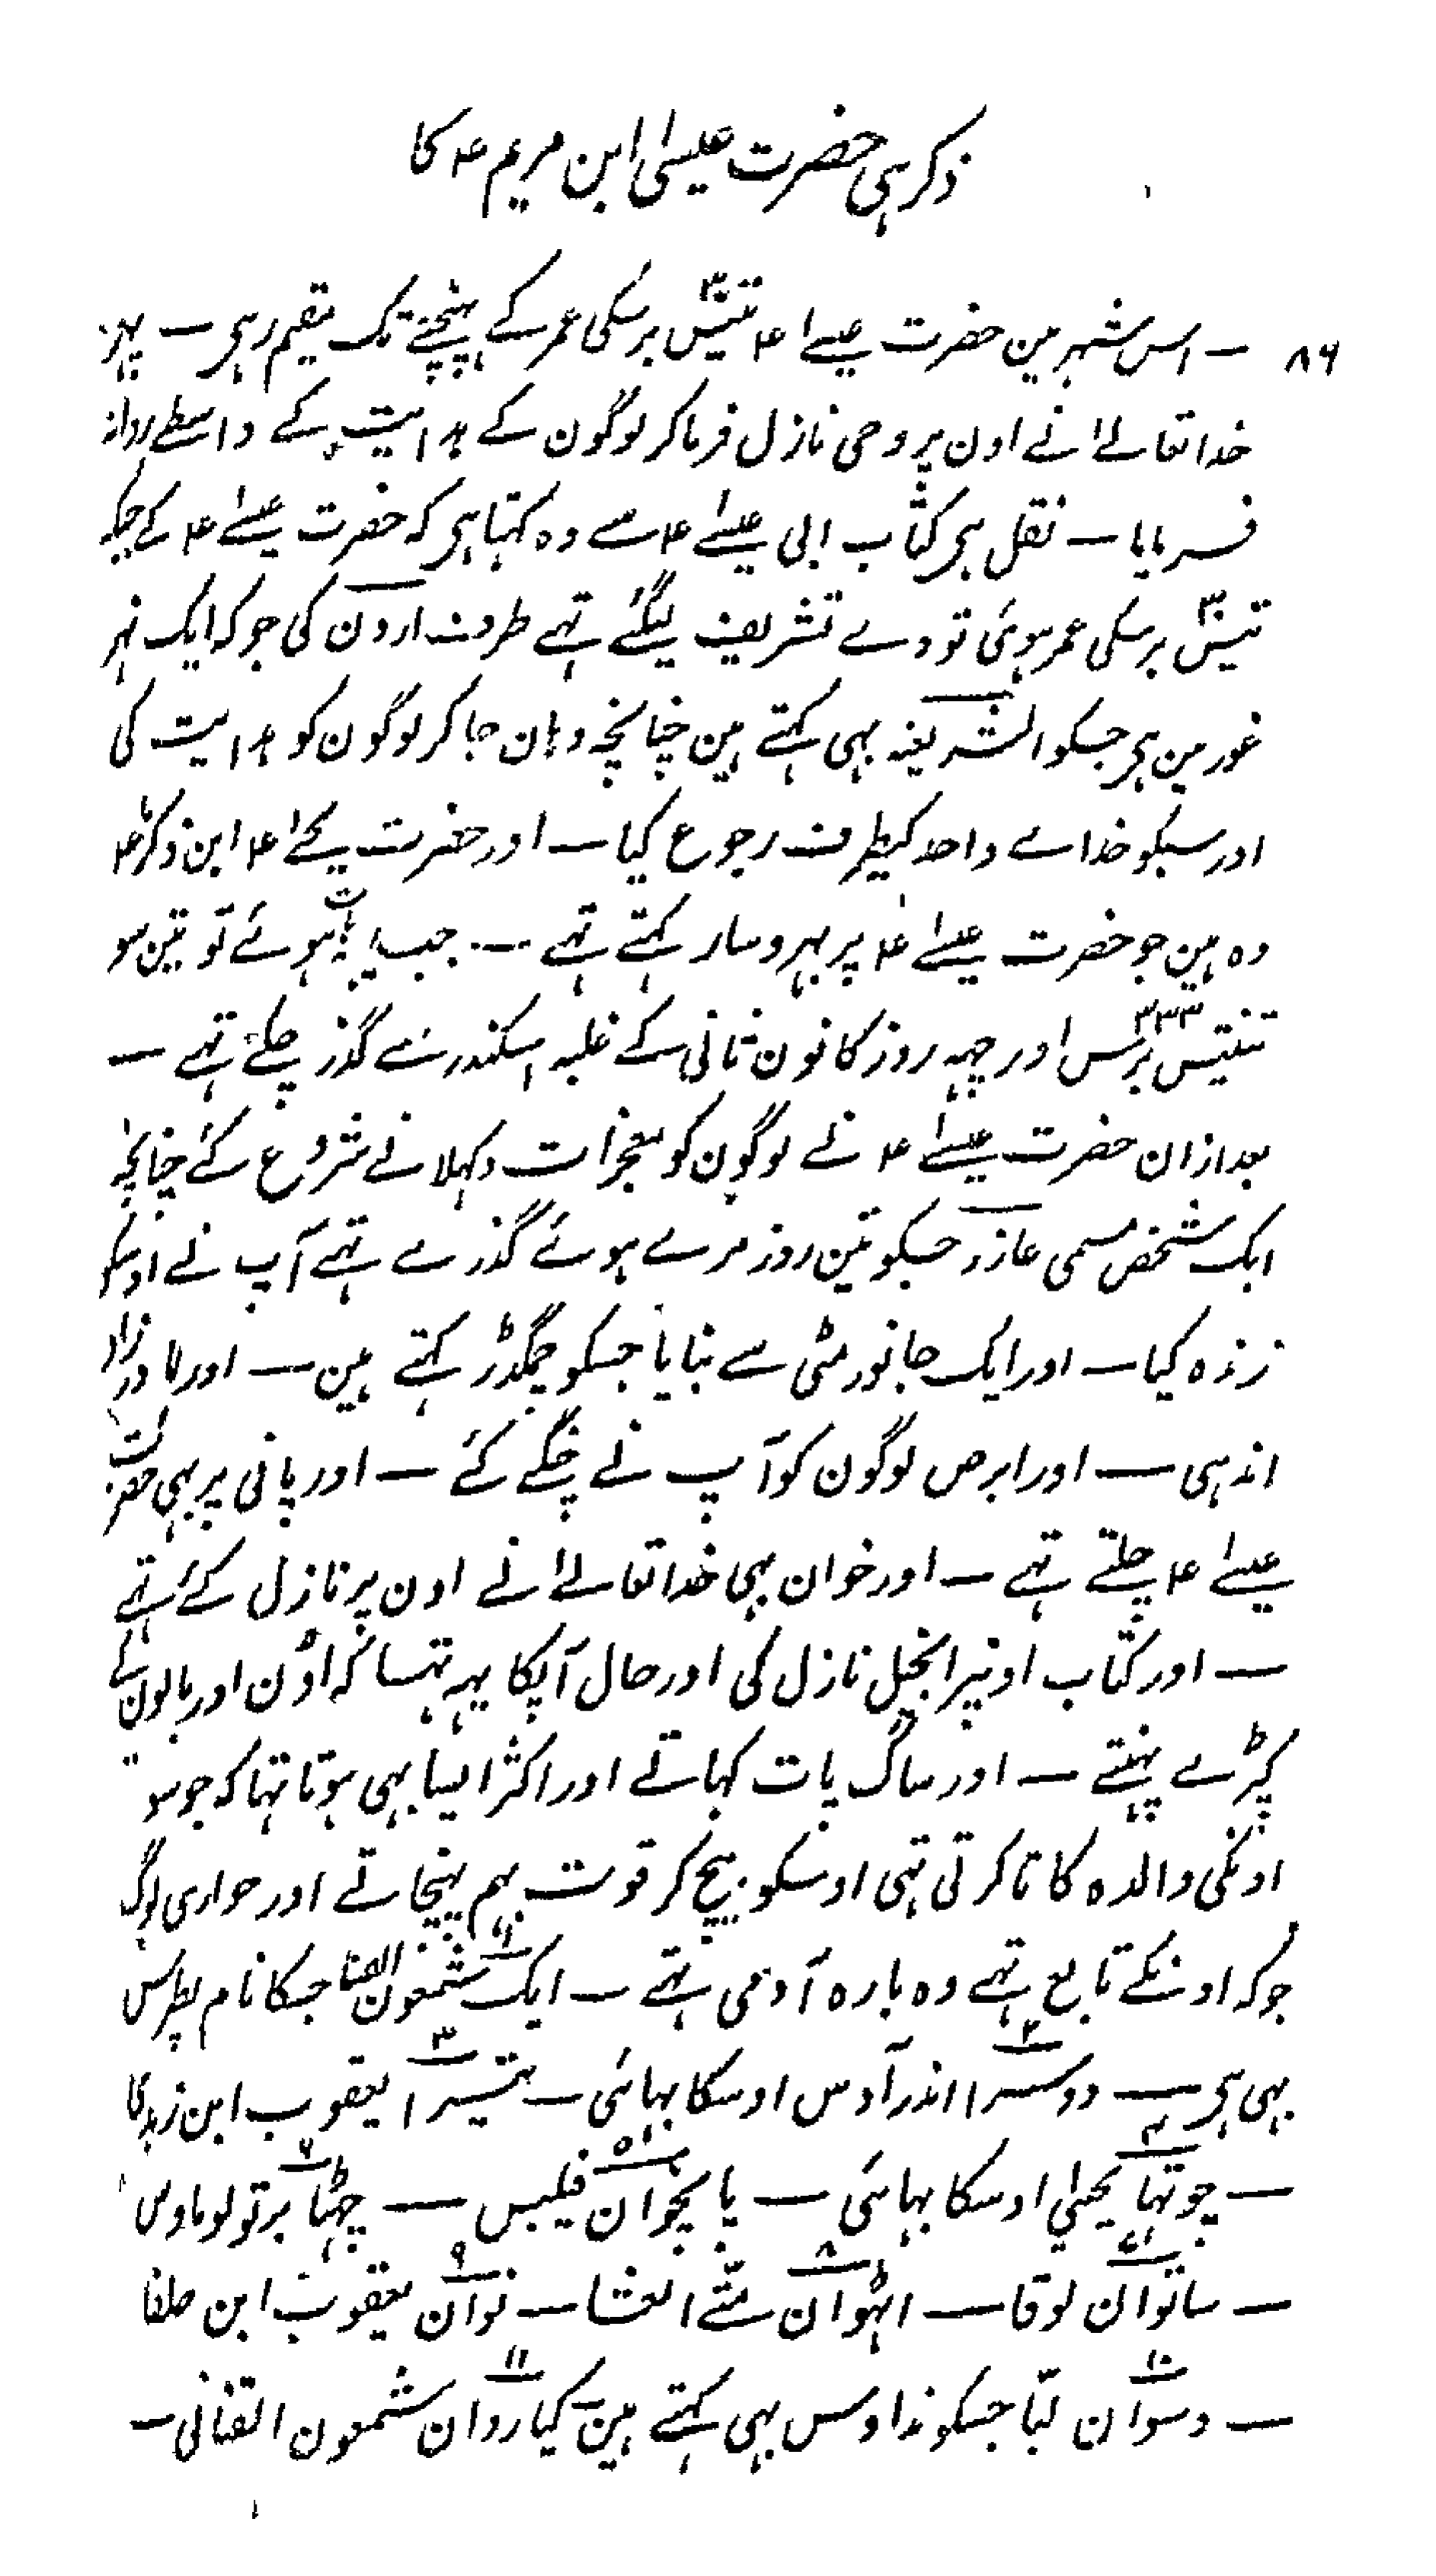 ذکر ہی حضرت عیسیٰ ابن مریم ۴ کا
۸۶ — اس شہر مین حضرت عیسےٰ ۴ تیس ۳۰ برسکی عمر کے پہنچنے تک مقیم رہی — پہر
خدا تعالےٰ نے اون پر وحی نازل فرما کر لوگون کے ہدایت کے واسطے روانہ
فرمایا — نقل ہی کتاب ابی عیسےٰ ۴ سے وہ کہتا ہی کہ حضرت عیسےٰ ۴ کے جبکہ
تیس ۳۰ برسکی عمر ہوئی تو وے تشریف لیگئے تہے طرف اردن کی جو کہ ایک نہر
غور مین ہی جسکو الشریعہ بہی کہتے ہین چنانچہ وہان جا کر لوگون کو ہدایت کی
اور سبکو خداے واحد کیطرف رجوع کیا — اور حضرت یحےٰ ۴ ابن زکریا ۴
وہ ہین جو حضرت عیسےٰ ۴ پر بہروسا رکہتے تہے — جب ہوئے تو تین سو
تنتیس ۳۳۳ برس اور چہہ روز کانون ثانی کے غلبہ اسکندر سے گذر چلے تہے —
بعد ازان حضرت عیسےٰ ۴ نے لوگون کو معجزات دکہلانے شروع کئے چنانچہ
ایک شخص مسمی عازر جسکو تین روز مرے ہوئے گذرے تہے آپ نے اوسکو
زندہ کیا — اور ایک جانور مٹی سے بنایا جسکو چمگدڑ کہتے ہین — اور مادر زاد
اندہی — اور ابرص لوگون کو آپ نے چنگے کئے — اور پانی پر بہی حضرت
عیسےٰ ۴ چلتے تہے — اور خوان بہی خدا تعالےٰ نے اون پر نازل کئے تہے
— اور کتاب اونپر انجیل نازل کی اور حال آپکا یہہ تہا کہ اوُن اور بالون کے
کپڑے پہنتے — اور ساگ پات کہاتے اور اکثر ایسا بہی ہوتا تہا کہ جو سوت
اونکی والدہ کاتا کرتی تہی اوسکو بیچ کر قوت بہم پہنچاتے اور حواری لوگ
جو کہ اونکے تابع تہے وہ بارہ آدمی تہے — ایک ۱ شمعون الصفا جسکا نام پطرس
بہی ہی — دوسرا ۲ اندرآوس اوسکا بہائی — تیسرا ۳ یعقوب ابن زبدی کا
— چوتہا ۴ یحیٰی اوسکا بہائی — پانچوان ۵ فیلبس — چہٹا ۶ برتولوماوس
— ساتوان ۷ لوقا — اٹہوان ۸ متّے العشا — نوان ۹ یعقوب ابن حلفا
— دسوان ۱۰ لبّا جسکو تداوس بہی کہتے ہین گیاروان ۱۱ شمعون القنانی —